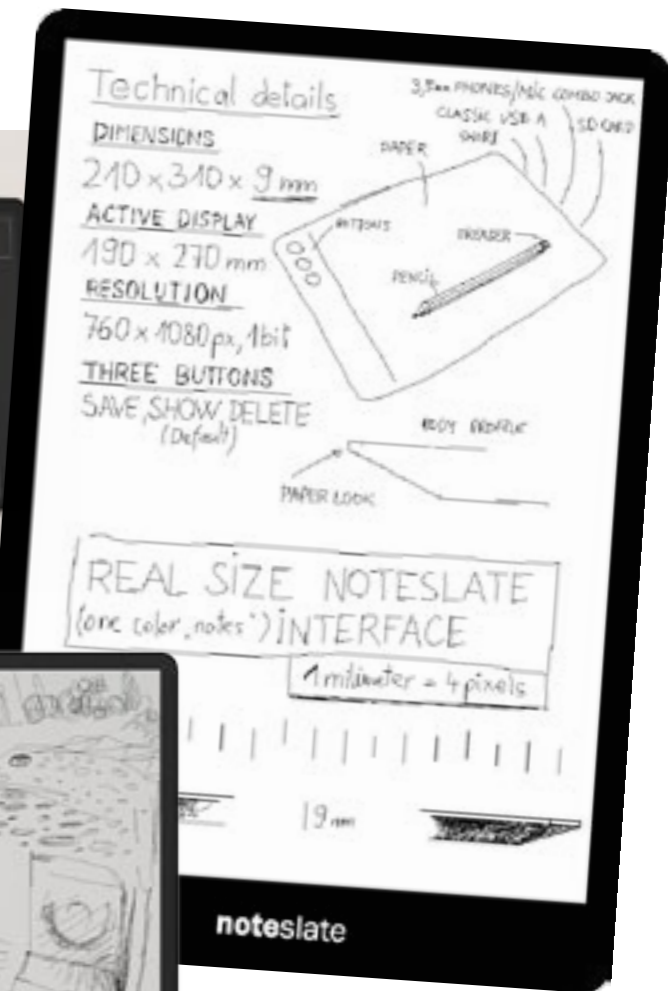 Technical details
DIMENSIONS
210 x 310 x 9 mm
ACTIVE DISPLAY
190 x 270 mm
RESOLUTION
760 x 1080 px, 1bit
THREE BUTTONS
SAVE, SHOW, DELETE
(Default)
3,5mm PHONES/MIC COMBO JACK
CLASSIC USB A
SD CARD
PAPER
BUTTONS
ERASER
PENCIL
BODY PROFILE
PAPER LOOK
REAL SIZE NOTESLATE
(one color „notes") INTERFACE
1 milimeter = 4 pixels
9 mm
noteslate